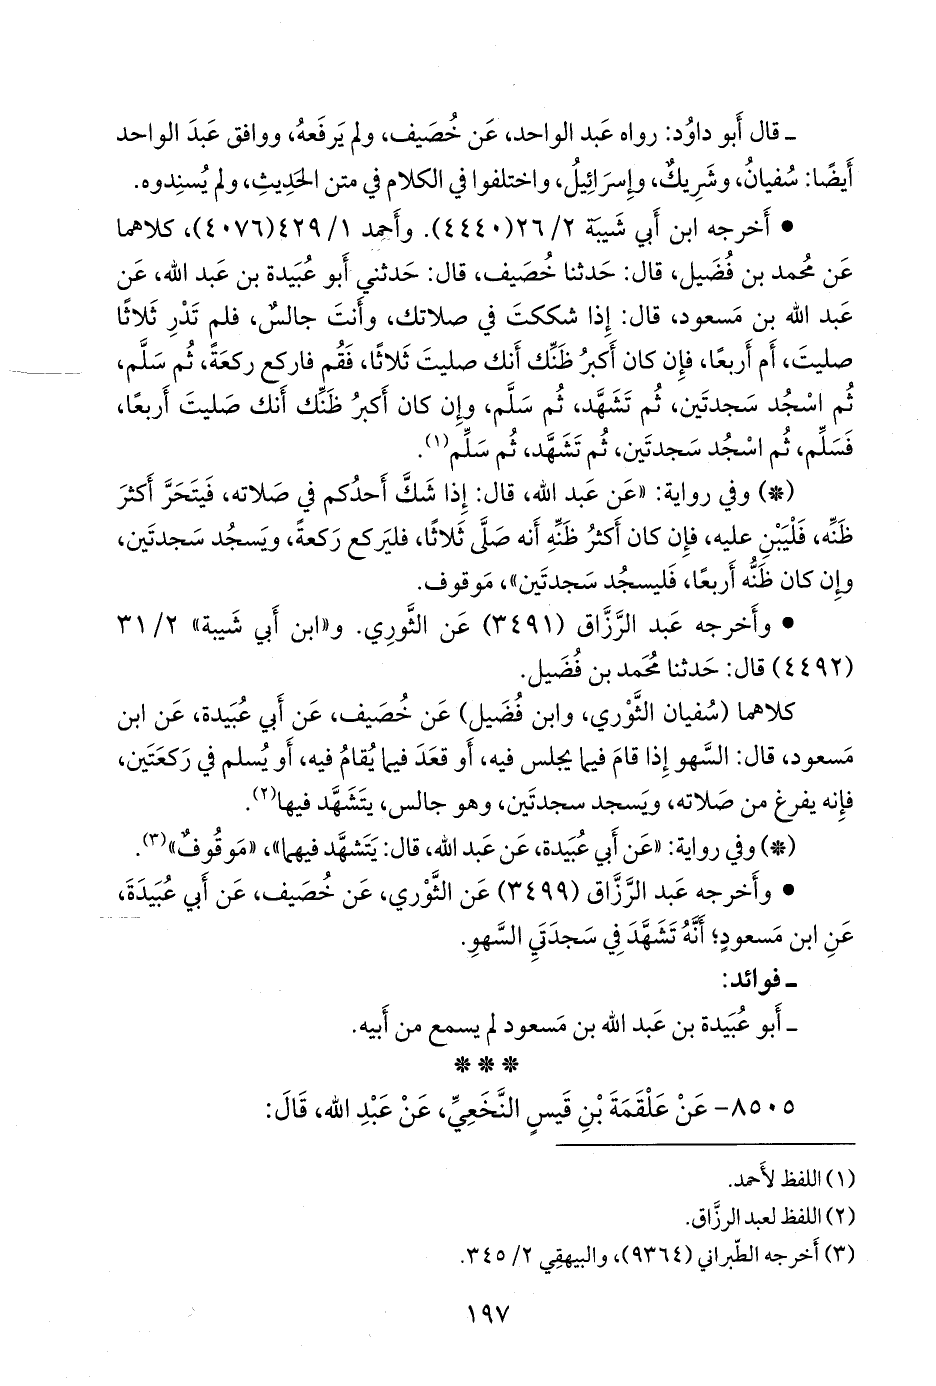 ـ قال أَبو داوُد: رواه عَبد الواحد، عَن خُصَيف، ولم يَرفَعهُ، ووافق عَبدَ الواحد
أَيضًا: سُفيانُ، وشَرِيكٌ، وإِسرَائِيلُ، واختلفوا في الكلام في متن الحَدِيثِ، ولم يُسنِدوه.
• أَخرجه ابن أَبي شَيبَة ٢/ ٢٦(٤٤٤٠). وأَحمد ١/ ٤٢٩(٤٠٧٦)، كلاهما
عَن مُحمد بن فُضَيل، قال: حَدثنا خُصَيف، قال: حَدثني أَبو عُبَيدة بن عَبد الله، عَن
عَبد الله بن مَسعود، قال: إِذا شككتَ في صلاتك، وأَنتَ جالسٌ، فلم تَدْرِ ثَلاثًا
صليتَ، أَم أَربعًا، فإِن كان أَكبرُ ظَنِّك أَنك صليتَ ثَلاثًا، فَقُم فاركع ركعَةً، ثُم سَلَّم،
ثُم اسْجُد سَجدتَين، ثُم تَشَهَّد، ثُم سَلَّم، وإِن كان أَكبرُ ظَنِّك أَنك صَليتَ أَربعًا،
فَسَلِّم، ثُم اسْجُد سَجدتَين، ثُم تَشَهَّد، ثُم سَلِّم(١).
(*) وفي رواية: «عَن عَبد الله، قال: إِذا شَكَّ أَحدُكم في صَلاته، فَيتَحَرَّ أَكثرَ
ظَنِّه، فَلْيَبْنِ عليه، فإِن كان أَكثرُ ظَنِّهِ أَنه صَلَّى ثَلاثًا، فليَركع رَكعةً، ويَسجُد سَجدتَين،
وإِن كان ظَنُّه أَربعًا، فَليسجُد سَجدتَين»، مَوقوف.
• وأَخرجه عَبد الرَّزَّاق (٣٤٩١) عَن الثَّورِي. و«ابن أَبي شَيبة» ٢/ ٣١
(٤٤٩٢) قال: حَدثنا مُحَمد بن فُضَيل.
كلاهما (سُفيان الثَّوْري، وابن فُضَيل) عَن خُصَيف، عَن أَبي عُبَيدة، عَن ابن
مَسعود، قال: السَّهو إِذا قامَ فيما يجلس فيه، أَو قعَدَ فيما يُقامُ فيه، أَو يُسلم في رَكعَتَين،
فإِنه يفرغ من صَلاته، ويَسجد سجدتَين، وهو جالس، يتَشَهَّد فيها(٢).
(*) وفي رواية: «عَن أَبي عُبَيدة، عَن عَبد الله، قال: يَتَشهَّد فيهما»، «مَوقُوفٌ»(٣).
• وأَخرجه عَبد الرَّزَّاق (٣٤٩٩) عَن الثَّوْري، عَن خُصَيف، عَن أَبي عُبَيدَةَ،
عَنِ ابن مَسعودٍ؛ أَنَّهُ تَشَهَّدَ فِي سَجدَتَيِ السَّهوِ.
ـ فوائد:
ـ أَبو عُبَيدة بن عَبد الله بن مَسعود لم يسمع من أَبيه.
* * *
٨٥٠٥- عَنْ عَلْقَمَةَ بْنِ قَيسٍ النَّخَعِيِّ، عَنْ عَبْدِ الله، قَالَ:
(١) اللفظ لأَحمد.
(٢) اللفظ لعبد الرزَّاق.
(٣) أَخرجه الطَّبراني (٩٣٦٤)، والبيهقِي ٢/ ٣٤٥.
١٩٧